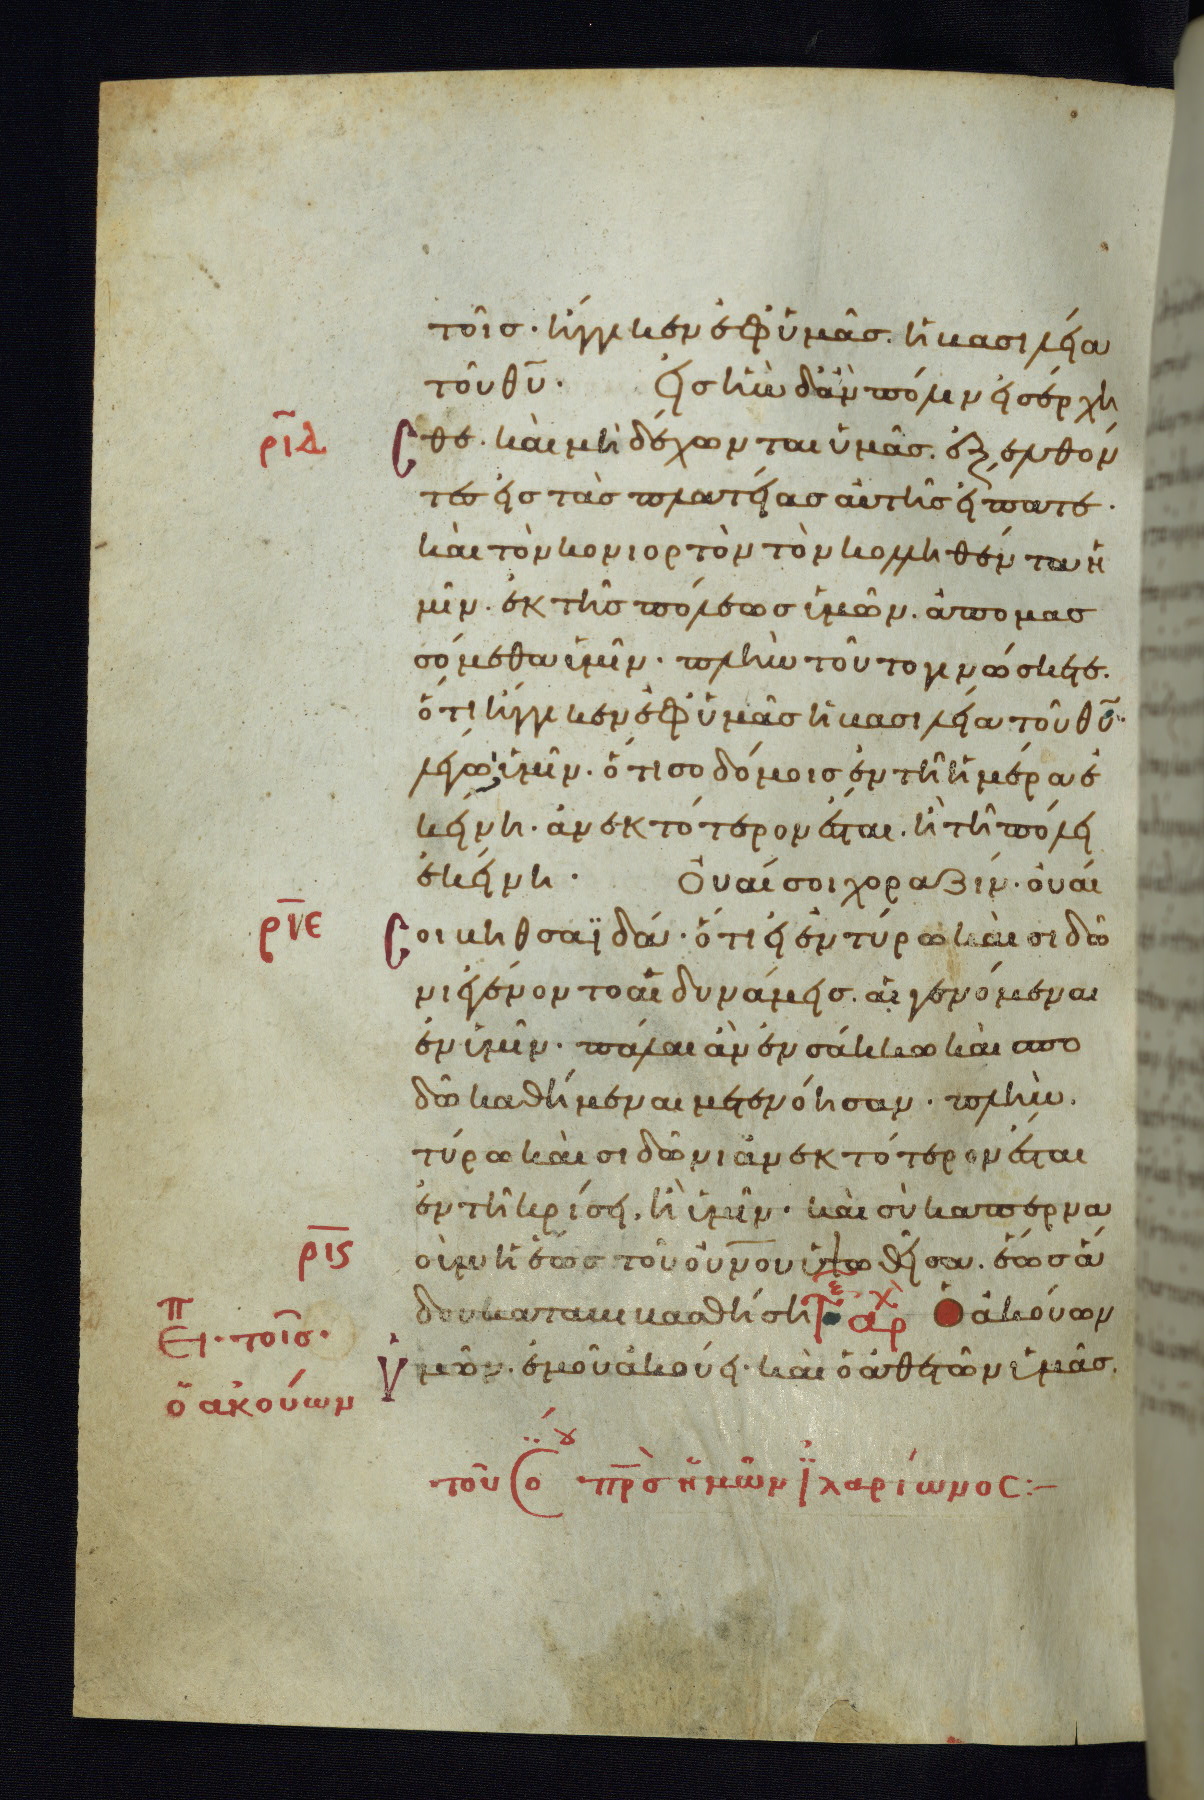 τοῖσ · ἠγγικεν ἐφ ὑμᾶσ · ἡ βασιλεία
τοῦ θ̅υ̅ · εἰσ ἣν δ ἂν πόλιν εἰσέρχη
ρ̅ι̅δ̅ σθε · καὶ μὴ δέχωνται ὑμᾶσ · ἐξελθόν
τεσ εἰσ τὰσ πλατείασ αὐτῆσ εἴπατε ·
καὶ τὸν κονιορτὸν τὸν κολληθέντα ἡ
μῖν · ἐκ τῆσ πόλεωσ ὑμῶν · ἀπομασ
σόμεθα ὑμῖν · πλὴν τοῦτο γινώσκετε ·
ὅτι ἤγγικεν ἐφ ὑμᾶσ ἡ βασιλεία τοῦ θ̅υ̅ ·
λέγω ὑμῖν · ὅτι σοδόμοισ ἐν τῆ ἡμέρα ἐ
κείνη · ἀνεκτότερον ἔσται · ἢ τῆ πόλει
ἐκείνη · Οὐαί σοι χοραζίν · οὐαί
ρ̅ι̅ε̅ σοι βηθσαϊδά · ὅτι εἰ ἐν τύρω καὶ σιδῶ
νι ἐγένοντο αἱ δυνάμεισ · αἱ γενόμεναι
ἐν ὑμῖν · πάλαι ἂν ἐν σάκκω καὶ σπο
δῶ καθήμεναι μετενόησαν · πλὴν ·
τύρω καὶ σιδῶνι ἀνεκτότερον ἔσται
ἐν τῆ κρίσει, ἢ ὑμῖν · καὶ σὺ καπερνα
ρ̅ι̅ς̅ οὺμ ἡ ἕωσ τοῦ οὐ̅ν̅ου ὑψωθεῖσα · ἕωσ ἅ
δου καταβιβασθήση ἀρχ Ὁ ἀκούων
Εἰ · τοῖσ ·
ὑμῶν · ἐμοῦ ἀκούει · καὶ ὁ ἀθετῶν ὑμᾶσ ·
ὁ ἀκούων
τοῦ ὁ π̅ρ̅σ ἡμῶν ἱλαρίωνοσ :–